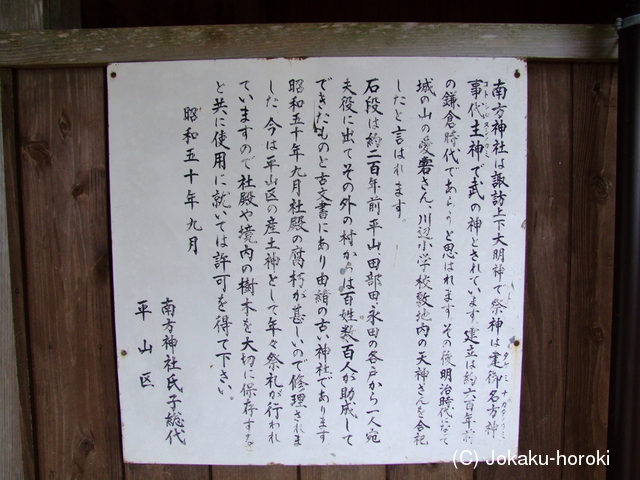 南方神社は諏訪上下大明神で祭神は建御名方神
事代主神で武の神とされています。建立は約六百年前
の鎌倉時代であらうと思はれます。その後明治時代になって
城の山の愛宕さん、川辺小学校敷地内の天神さんを合祀
したと言はれます。
石段は約二百年前平山田部田・永田の各戸から一人宛
夫役に出てその外の村からは百姓数百人が助成して
できたものと古文書にあり由緒の古い神社であります
昭和五十年九月社殿の腐朽が甚しいので修理されま
した 今は平山区の産土神として年々祭礼が行われ
ていますので社殿や境内の樹木を大切に保存する
と共に使用に就いては許可を得て下さい。
昭和五十年九月
南方神社氏子総代
平山区
(C) Jokaku-horoki